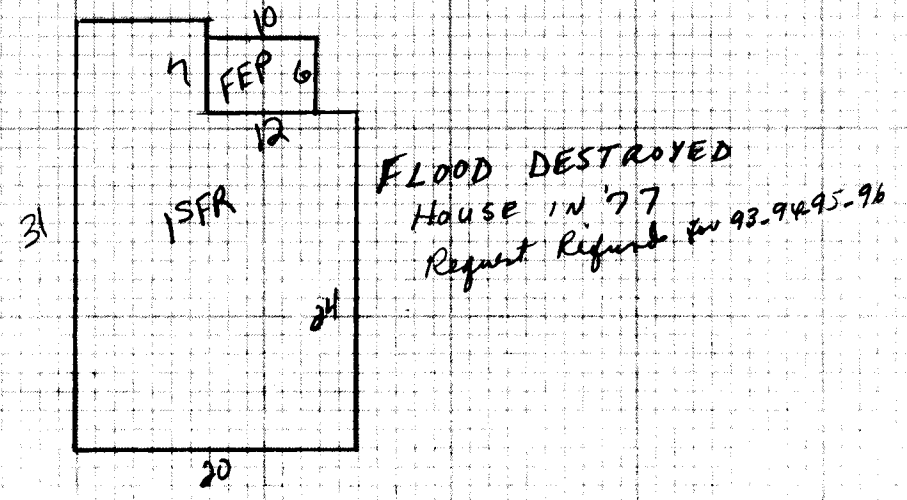 10
7
FEP
6
12
31
1SFR
24
20
FLOOD DESTROYED
House IN '77
Request Refund for 93-94-95-96